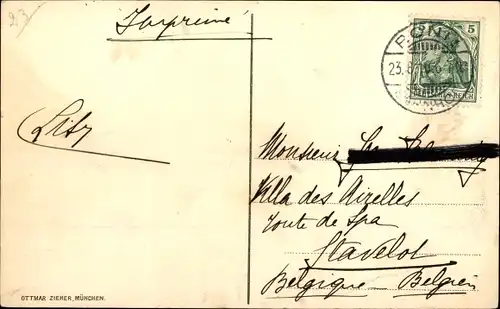 23
Imprimé
5
PÖNI
23.8.
REICH
Lisy
Monsieur
Villa des Airelles
route de Spa
Stavelot
Belgique - Belgien
OTTMAR ZIEHER, MÜNCHEN.